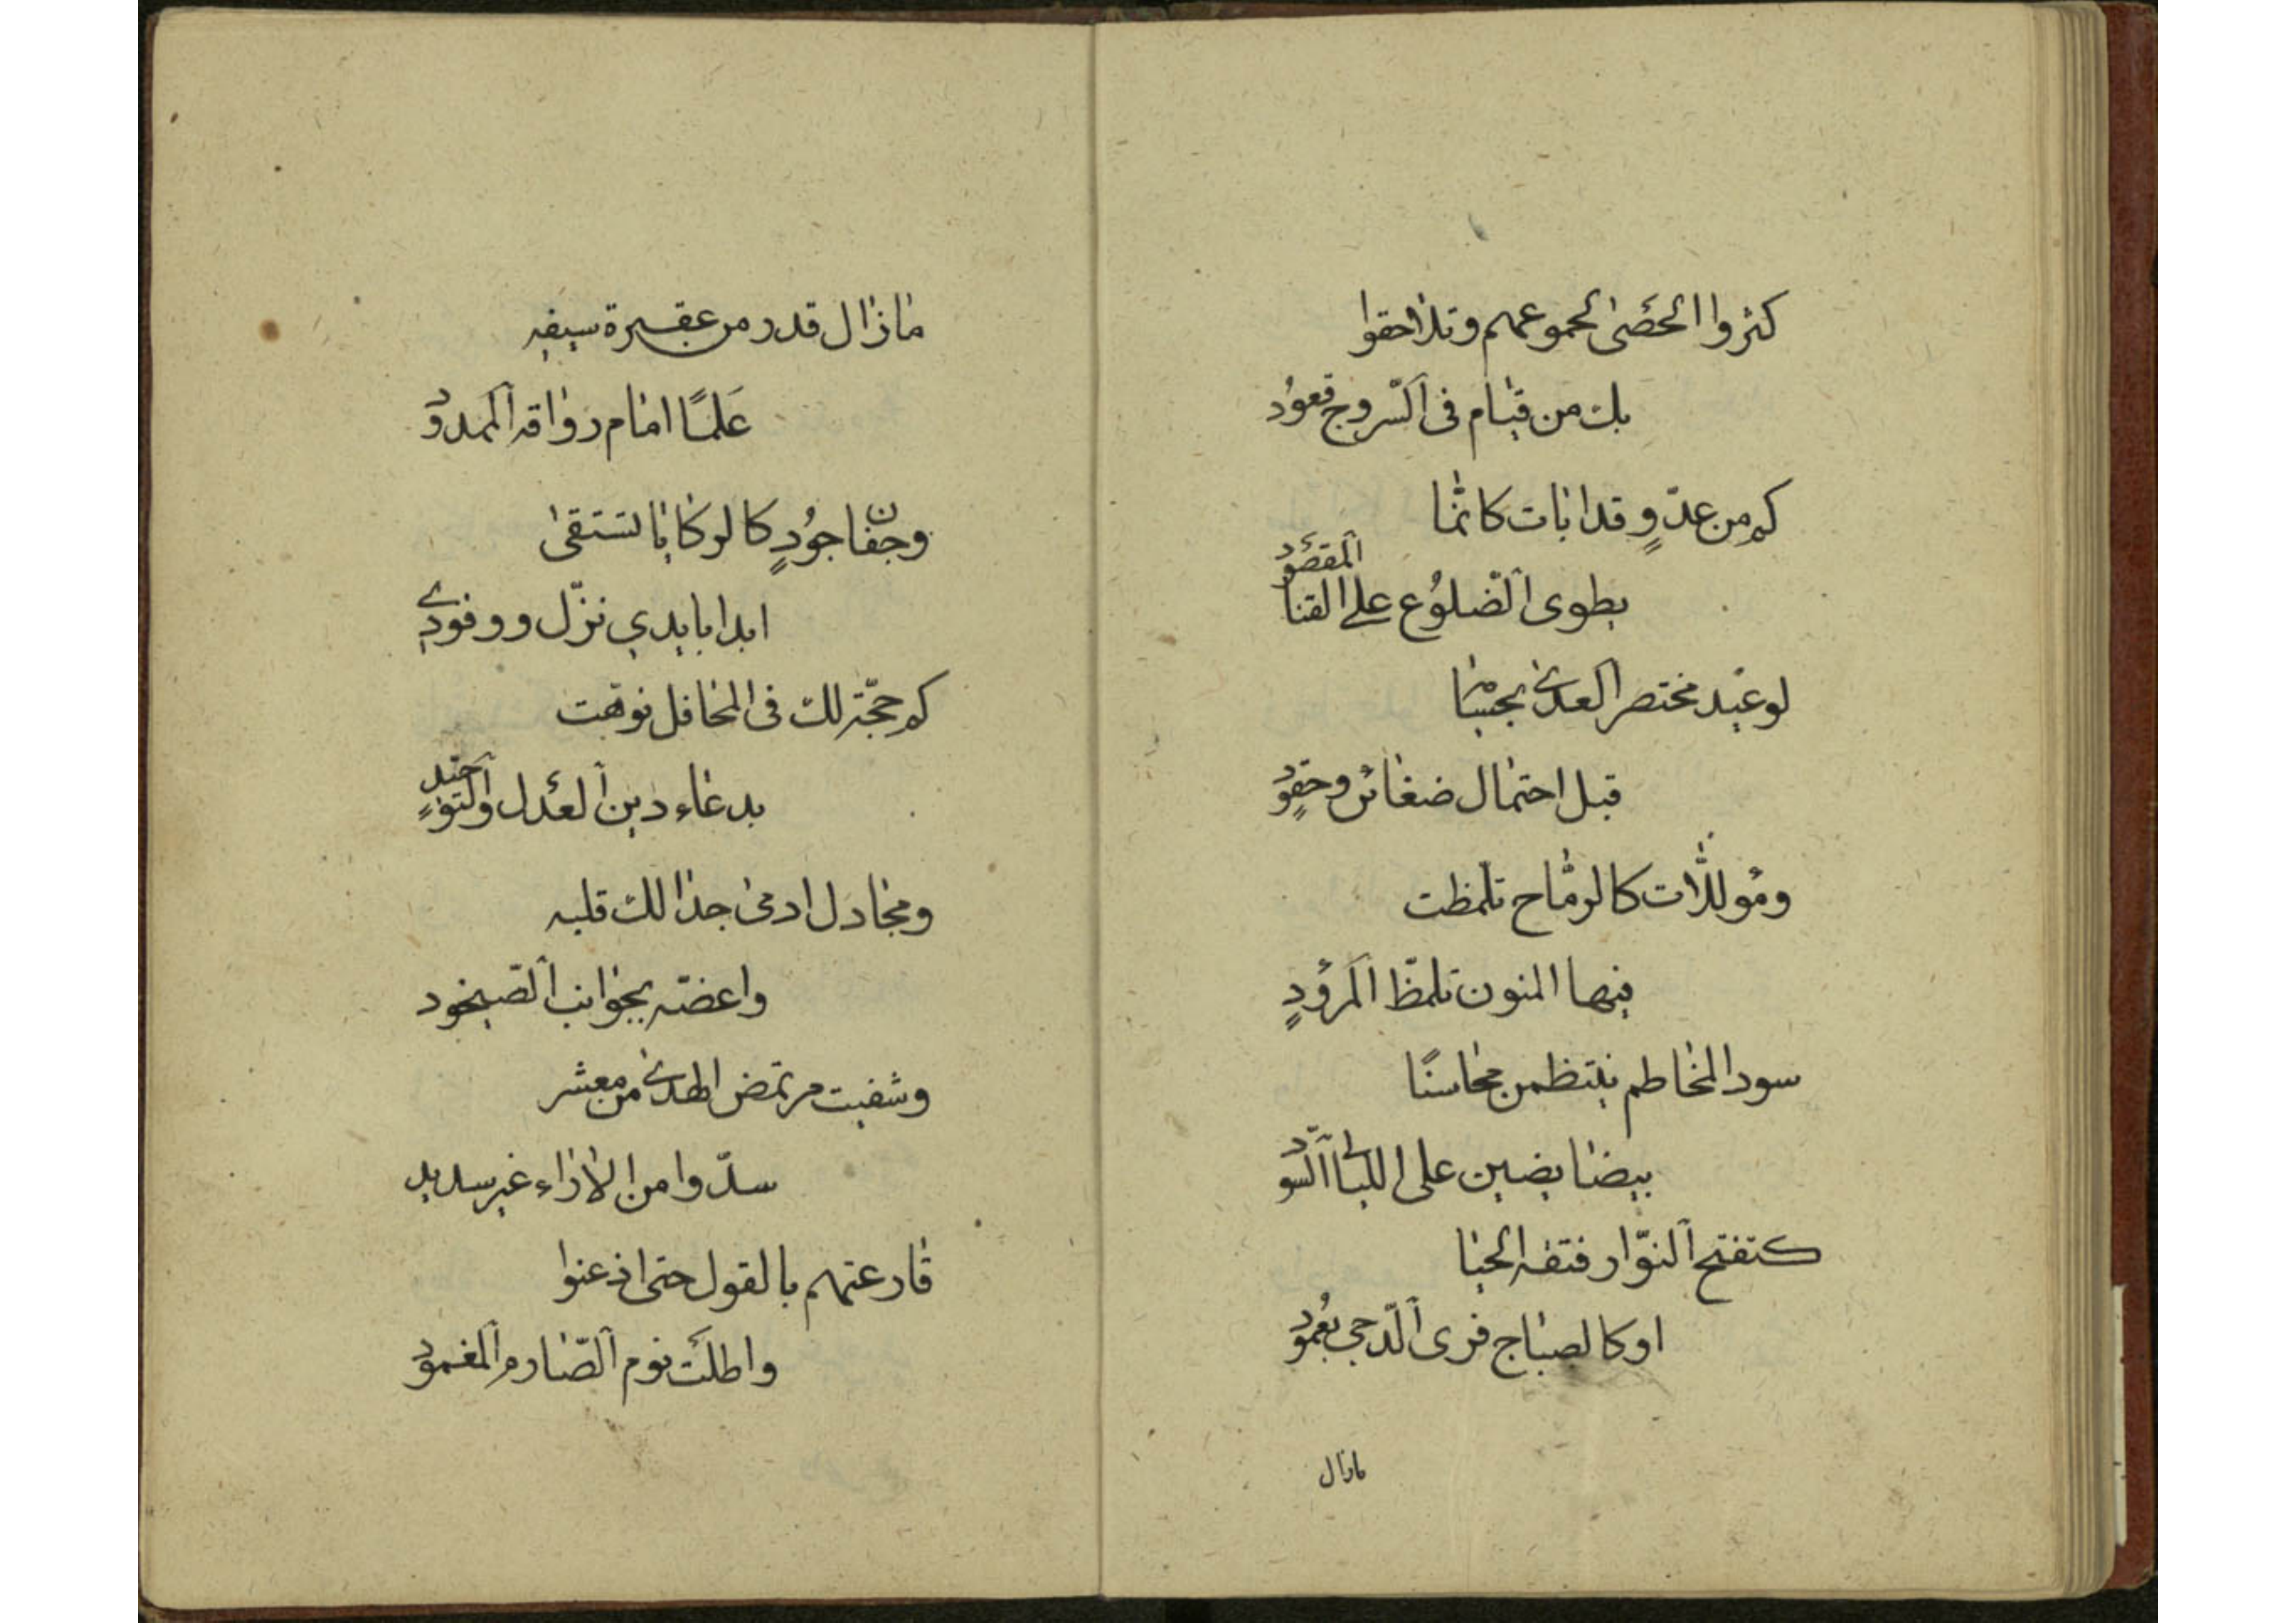 كثروا الحصى لجموعهم وتلاحقوا
بك من قيام فى السروج قعود
كم من عدوٍ قد ابات كانما
يطوى الضلوع على القنا المقصود
لو عيد مختصر العدى بجبينا
قبل احتمال ضغائن وحقود
ومؤللات كالرماح تلمظت
فيها المنون تلمظ المرؤدٍ
سود المخاطم ينتظمن محاسنًا
بيضا يضين على الليالى السود
كتفتح النوار فتقه الحيا
او كالصباح فرى الدجى بعمود
مازال
مازال قدر من عقيرة سيفه
عَلمًا امام رواقه الممدود
وجفان جُودٍ كالركايا تستقى
ابدا بايدي نزّل ووفود
كم حجّة لك فى المحافل نوهت
بدعاء دين العدل والتوحيد
ومجادل ادمى جدالك قلبه
واعضّه بجوانب الصيخود
وشفيت ممرتض الهدى من معشر
سدّوا من الاراء غير سديد
قارعتهم بالقول حتى اذعنوا
واطلت نوم الصّارم المغمود